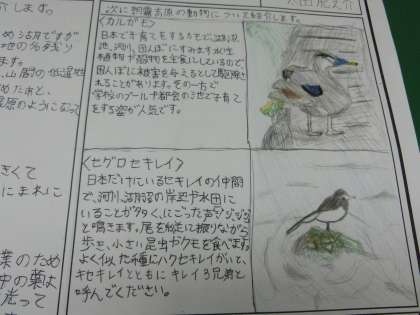 次に朝霧高原の動物について紹介します。
〈カルガモ〉
日本で子育てをするカモで、湖沼、
池、河川、田んぼにすみます。水生
植物や穀物を主食にしているので、
田んぼに被害を与えるとして駆除さ
れることがあります。その一方で
学校のプールや都会の池で子育て
をする姿が人気です。
〈セグロセキレイ〉
日本だけにいるセキレイの仲間
で、河川、湖沼の岸辺や水田に
いることが多く、にごった声でジジジジ
と鳴きます。尾を縦に振りながら
歩き、小さい昆虫やクモを食べます。
よく似た種にハクセキレイがいて、
キセキレイとともにキレイ3兄弟と
呼んでください。
める場です
山間の低湿地
めたあと、
湿原のようになって
きくて
にまれに
業のため
中の薬よ
走って